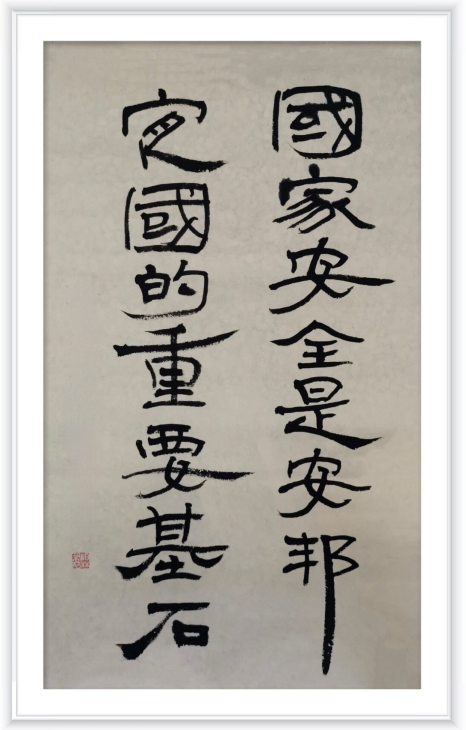 國家安全是安邦
定國的重要基石